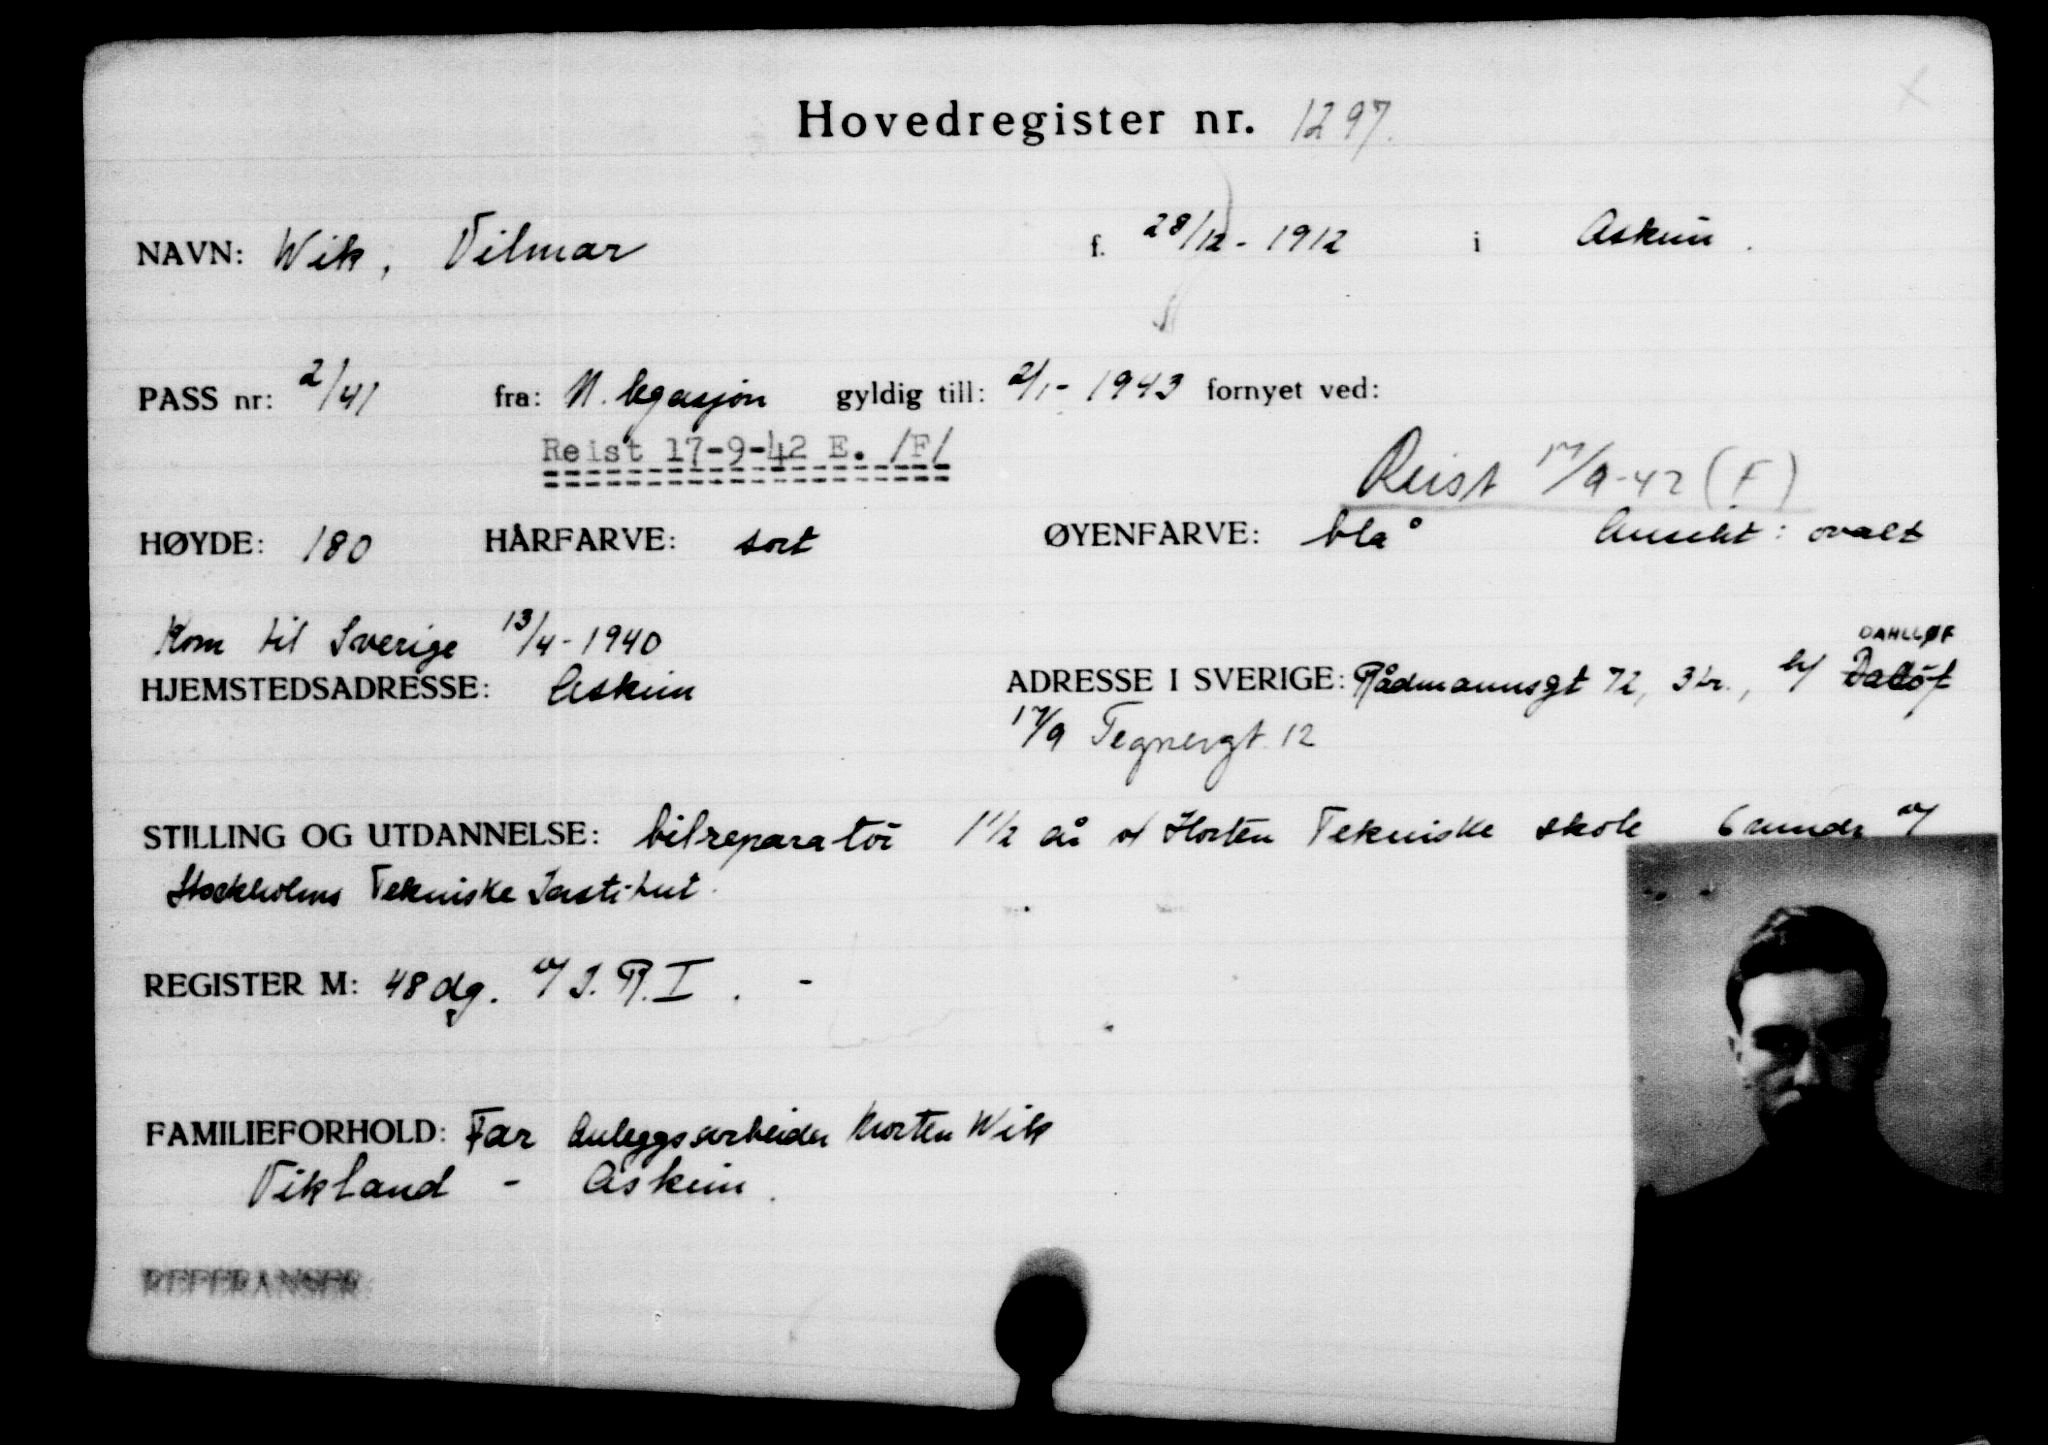 Hovedregister nr. 1297.
NAVN: Wik, Vilmar f. 28/12 - 1912 i Askim.
PASS nr: 2/41 fra: N. legasjon gyldig till: 2/1 - 1943 fornyet ved:
Reist 17-9-42 E. /F/
Reist 17/9-42 (F)
HØYDE: 180 HÅRFARVE: sort ØYENFARVE: blå Ansikt: ovalt
Kom til Sverige 13/4 - 1940
DAHLLØF
HJEMSTEDSADRESSE: Askim ADRESSE I SVERIGE: Rådmannsgt 72, 3 tr., b/ Dalöf
17/9 Tegnergt. 12
STILLING OG UTDANNELSE: bilreparatör 1 1/2 år v/ Horten Tekniske skole 6 mndr v/
Stockholms Tekniske Institut.
REGISTER M: 48 dg. v/ I.R. I. -
FAMILIEFORHOLD: Far Anleggsarbeider Morten Wik
Vikland - Askim.
REFERANSER